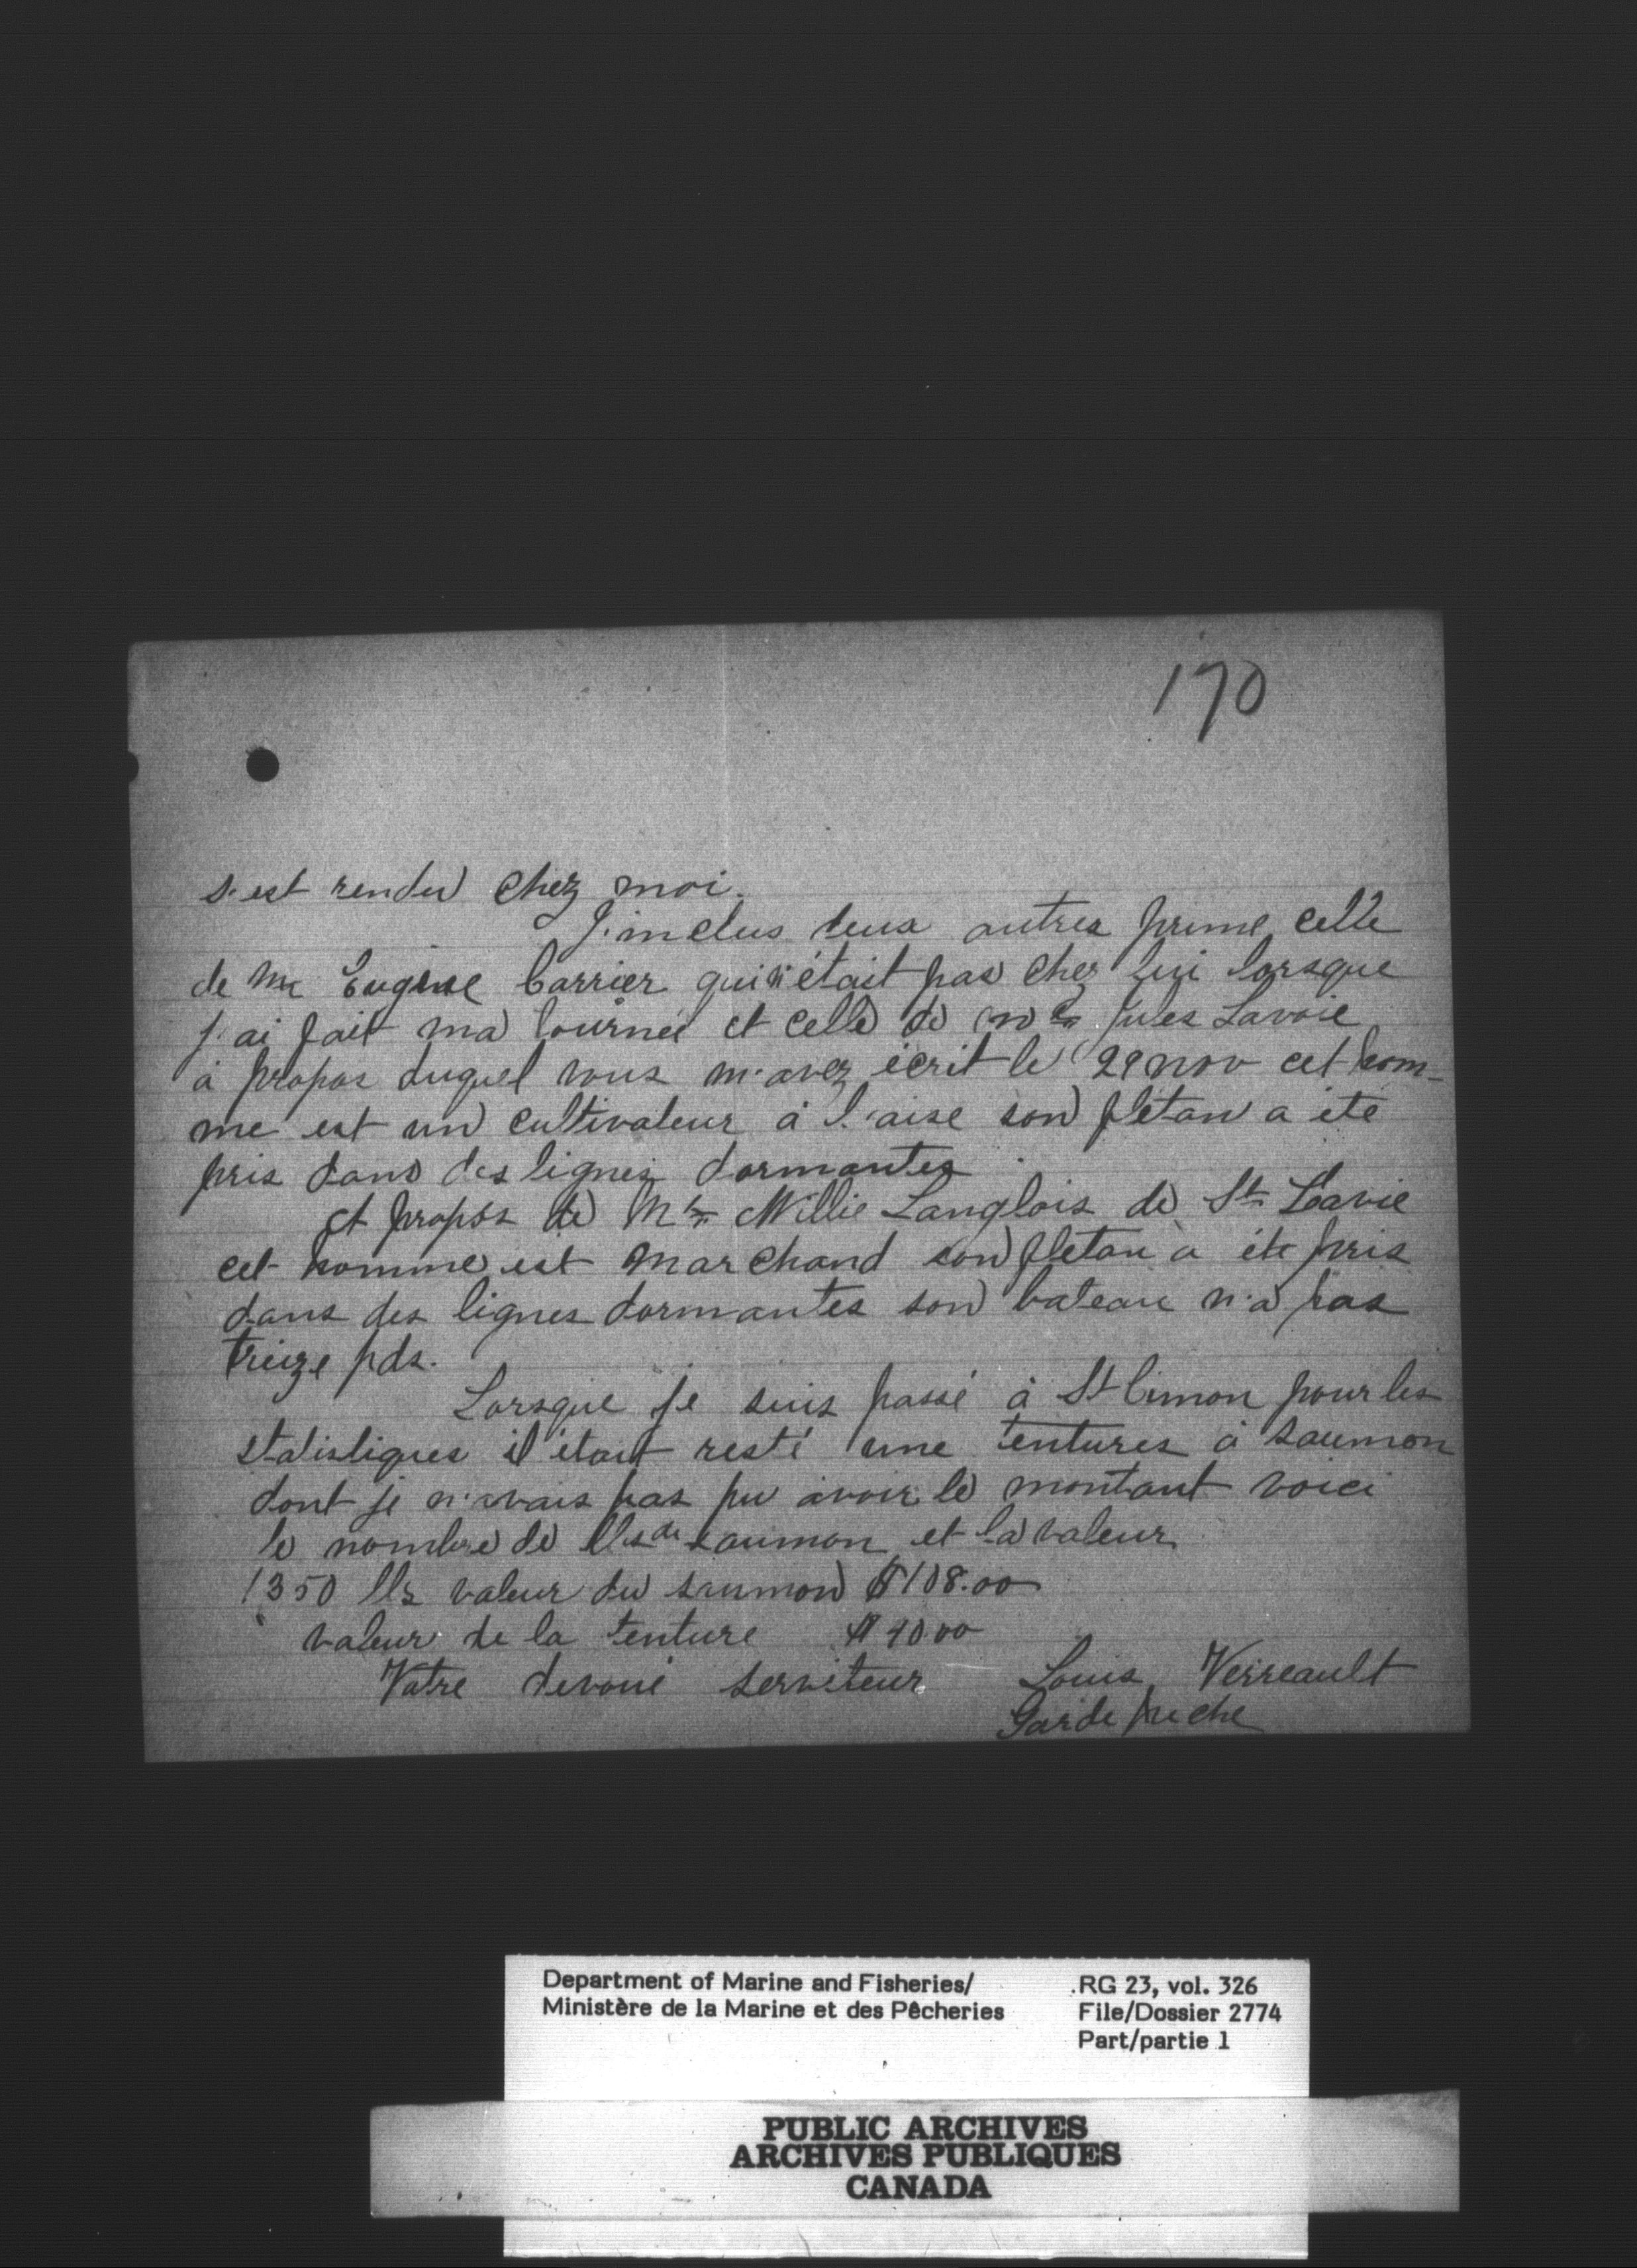 170
s'est rendu chez moi.
J'inclus deux autres prime celle
de Mr Eugène Carrier qui n'était pas chez lui lorsque
j'ai fait ma tournée et celle de Mr Jules Lavoie
à propos duquel vous m'avez écrit le 29 nov cet hom-
me est un cultivateur à l'aise son flétan a été
pris dans des lignes dormantes.
et propos de Mr Willie Langlois de St
cet homme est marchand son flétan a été pris
dans des lignes dormantes son bateau n'a pas
treize pds.
Lorsque je suis passé à St Cimon pour les
statistiques il était resté une tentures à saumon
dont je n'avais pas pu avoir le montant voici
le nombre de lbs de saumon et la valeur
1350 lbs valeur du saumon $108.00
valeur de la tenture $40.00
Votre dévoué serviteur Louis Verreault
Garde pêche
Department of Marine and Fisheries/ RG 23, vol. 326
Ministère de la Marine et des Pêcheries File/Dossier 2774
Part/partie 1
PUBLIC ARCHIVES
ARCHIVES PUBLIQUES
CANADA